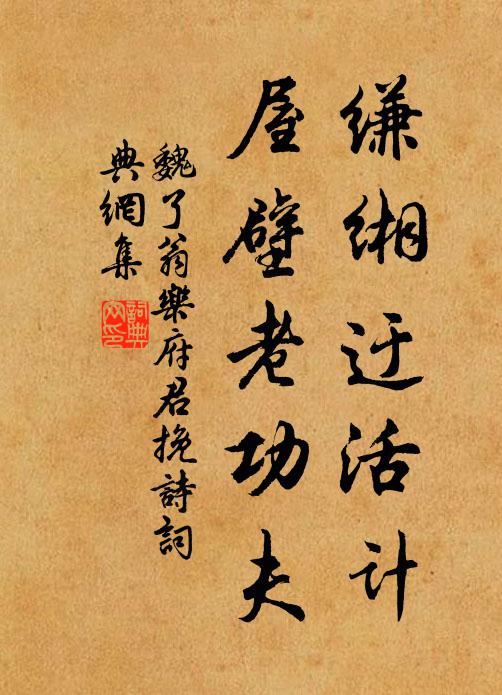 缣缃迂活计
屋壁老功夫
魏了翁樂府君挽詩詞
典網集
詞典
网印